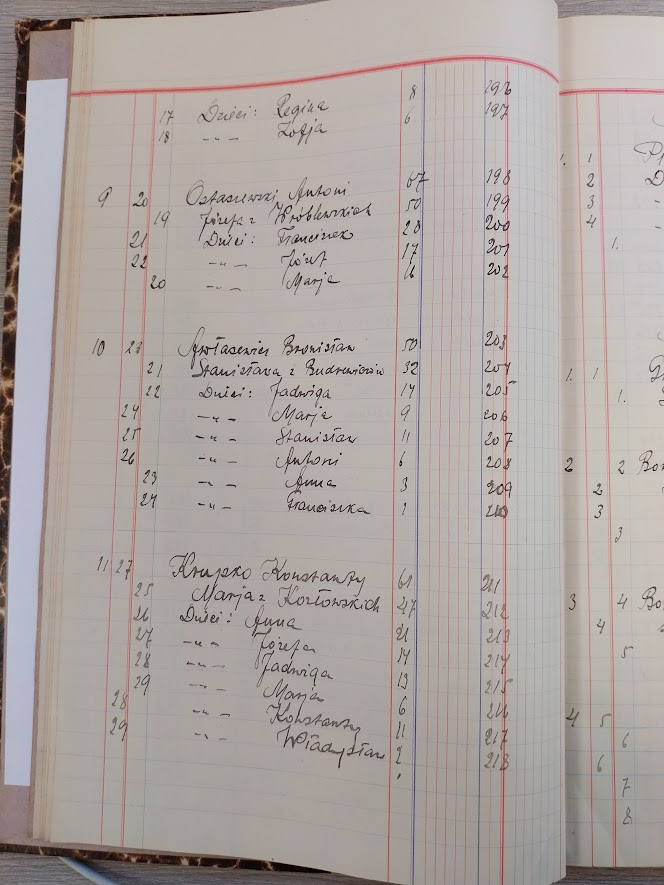 17 Dzieci: Regina 8 196
18 -„- Zofja 6 197
9 20 Ostaszewski Antoni 67 198
19 Józefa z Wróblewskich 50 199
21 Dzieci: Franciszek 20 200
22 -„- Józef 17 201
20 -„- Marja 16 202
10 23 Bronisław 50 203
21 Stanisława z 32 204
22 Dzieci: Jadwiga 14 205
24 -„- Marja 9 206
25 -„- Stanisław 11 207
26 -„- Antoni 6 208
23 -„- Anna 3 209
24 -„- Franciszka 1 210
11 27 Krupko Konstanty 61 211
25 Marja z Kozłowskich 47 212
26 Dzieci: Anna 21 213
27 -„- Józefa 14 214
28 -„- Jadwiga 13 215
29 -„- Marja 6 216
28 -„- Konstanty 11 217
29 -„- Władysław 2 218
1. 1
2
3
4
1.
1. 1
1.
2 2
2
3
3
3 4
4
5
4 5
6
6
7
8